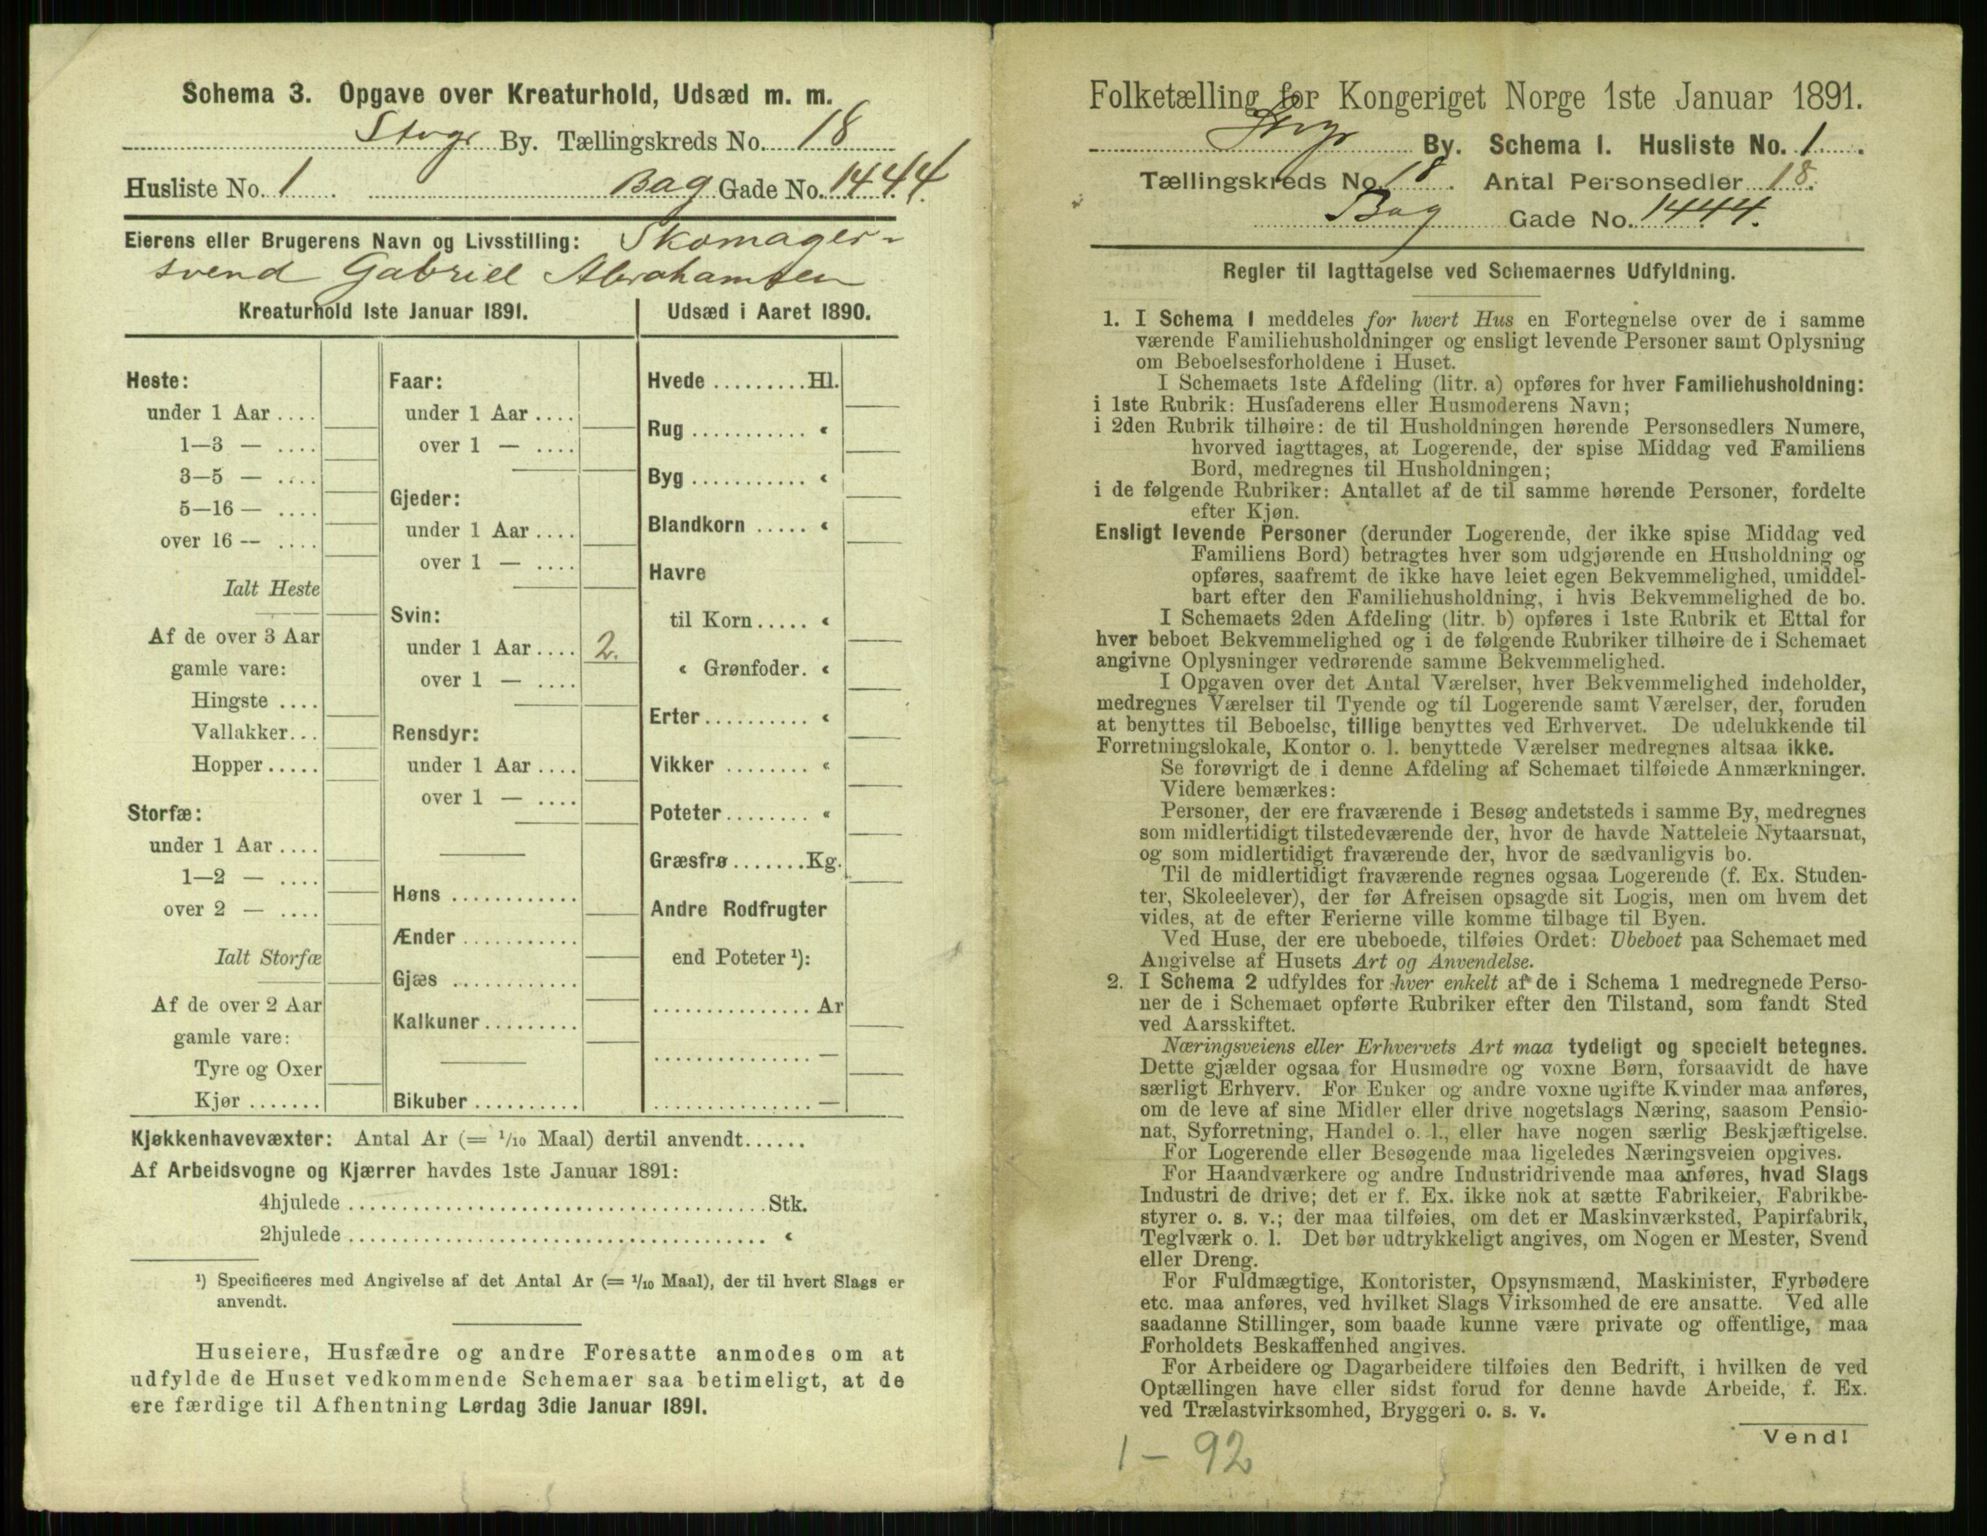 Schema 3. Opgave over Kreaturhold, Udsæd m. m.
Stvgr By. Tællingskreds No. 18
Husliste No. 1 Bag Gade No. 1444.
Eierens eller Brugerens Navn og Livsstilling: Skomager-
svend Gabriel Abrahamsen
Kreaturhold 1ste Januar 1891.
Heste:
under 1 Aar ....
1—3 — ....
3—5 — ....
5—16 — ....
over 16 — ....
Ialt Heste
Af de over 3 Aar
gamle vare:
Hingste ....
Vallakker...
Hopper.....
Storfæ:
under 1 Aar ....
1—2 — ....
over 2 — ....
Ialt Storfæ
Af de over 2 Aar
gamle vare:
Tyre og Oxer
Kjør .......
Faar:
under 1 Aar ....
over 1 — ....
Gjeder:
under 1 Aar ....
over 1 — ....
Svin:
under 1 Aar .... 2.
over 1 — ....
Rensdyr:
under 1 Aar ....
over 1 — ....
Høns ...........
Ænder ..........
Gjæs ...........
Kalkuner.........
Bikuber ..........
Udsæd i Aaret 1890.
Hvede .........Hl.
Rug ........... «
Byg ........... «
Blandkorn ..... «
Havre
til Korn..... «
« Grønfoder. «
Erter.......... «
Vikker ........ «
Poteter........ «
Græsfrø .......Kg.
Andre Rodfrugter
end Poteter ¹):
............... Ar
............... —
............... —
Kjøkkenhavevæxter: Antal Ar (= 1/10 Maal) dertil anvendt......
Af Arbeidsvogne og Kjærrer havdes 1ste Januar 1891:
4hjulede ..................................... Stk.
2hjulede ..................................... «
¹) Specificeres med Angivelse af det Antal Ar (= 1/10 Maal), der til hvert Slags er
anvendt.
Huseiere, Husfædre og andre Foresatte anmodes om at
udfylde de Huset vedkommende Schemaer saa betimeligt, at de
ere færdige til Afhentning Lørdag 3die Januar 1891.
Folketælling for Kongeriget Norge 1ste Januar 1891.
Stvgr By. Schema 1. Husliste No. 1.
Tællingskreds No. 18. Antal Personsedler 18.
Bag Gade No. 1444.
Regler til Iagttagelse ved Schemaernes Udfyldning.
1. I Schema 1 meddeles for hvert Hus en Fortegnelse over de i samme
værende Familiehusholdninger og ensligt levende Personer samt Oplysning
om Beboelsesforholdene i Huset.
I Schemaets 1ste Afdeling (litr. a) opføres for hver Familiehusholdning:
i 1ste Rubrik: Husfaderens eller Husmoderens Navn;
i 2den Rubrik tilhøire: de til Husholdningen hørende Personsedlers Numere,
hvorved iagttages, at Logerende, der spise Middag ved Familiens
Bord, medregnes til Husholdningen;
i de følgende Rubriker: Antallet af de til samme hørende Personer, fordelte
efter Kjøn.
Ensligt levende Personer (derunder Logerende, der ikke spise Middag ved
Familiens Bord) betragtes hver som udgjørende en Husholdning og
opføres, saafremt de ikke have leiet egen Bekvemmelighed, umiddel-
bart efter den Familiehusholdning, i hvis Bekvemmelighed de bo.
I Schemaets 2den Afdeling (litr. b) opføres i 1ste Rubrik et Ettal for
hver beboet Bekvemmelighed og i de følgende Rubriker tilhøire de i Schemaet
angivne Oplysninger vedrørende samme Bekvemmelighed.
I Opgaven over det Antal Værelser, hver Bekvemmelighed indeholder,
medregnes Værelser til Tyende og til Logerende samt Værelser, der, foruden
at benyttes til Beboelse, tillige benyttes ved Erhvervet. De udelukkende til
Forretningslokale, Kontor o. l. benyttede Værelser medregnes altsaa ikke.
Se forøvrigt de i denne Afdeling af Schemaet tilføiede Anmærkninger.
Videre bemærkes:
Personer, der ere fraværende i Besøg andetsteds i samme By, medregnes
som midlertidigt tilstedeværende der, hvor de havde Natteleie Nytaarsnat,
og som midlertidigt fraværende der, hvor de sædvanligvis bo.
Til de midlertidigt fraværende regnes ogsaa Logerende (f. Ex. Studen-
ter, Skoleelever), der før Afreisen opsagde sit Logis, men om hvem det
vides, at de efter Ferierne ville komme tilbage til Byen.
Ved Huse, der ere ubeboede, tilføies Ordet: Ubeboet paa Schemaet med
Angivelse af Husets Art og Anvendelse.
2. I Schema 2 udfyldes for hver enkelt af de i Schema 1 medregnede Perso-
ner de i Schemaet opførte Rubriker efter den Tilstand, som fandt Sted
ved Aarsskiftet.
Næringsveiens eller Erhvervets Art maa tydeligt og specielt betegnes.
Dette gjælder ogsaa for Husmødre og voxne Børn, forsaavidt de have
særligt Erhverv. For Enker og andre voxne ugifte Kvinder maa anføres,
om de leve af sine Midler eller drive nogetslags Næring, saasom Pensio-
nat, Syforretning, Handel o. l., eller have nogen særlig Beskjæftigelse.
For Logerende eller Besøgende maa ligeledes Næringsveien opgives.
For Haandværkere og andre Industridrivende maa anføres, hvad Slags
Industri de drive; det er f. Ex. ikke nok at sætte Fabrikeier, Fabrikbe-
styrer o. s. v.; der maa tilføies, om det er Maskinværksted, Papirfabrik,
Teglværk o. l. Det bør udtrykkeligt angives, om Nogen er Mester, Svend
eller Dreng.
For Fuldmægtige, Kontorister, Opsynsmænd, Maskinister, Fyrbødere
etc. maa anføres, ved hvilket Slags Virksomhed de ere ansatte. Ved alle
saadanne Stillinger, som baade kunne være private og offentlige, maa
Forholdets Beskaffenhed angives.
For Arbeidere og Dagarbeidere tilføies den Bedrift, i hvilken de ved
Optællingen have eller sidst forud for denne havde Arbeide, f. Ex.
ved Trælastvirksomhed, Bryggeri o. s. v.
Vend!
1 - 92